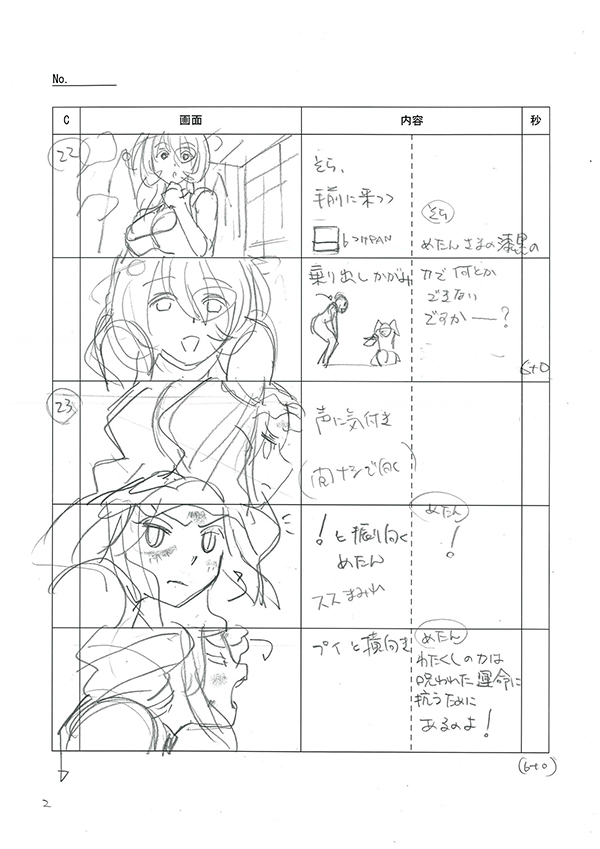 No.
C 画面 内容 秒
22
そら、
手前に来つつ
つけPAN
そら
めたんさまの漆黒の
乗り出しかがみ
力で何とか
できない
ですかー?
6+0
23
声に気付き
で向く
!と振り向く
めたん
ススまみれ
めたん
!
プイと横向き
めたん
わたくしの力は
呪われた運命に
抗うために
あるのよ!
(6+0)
2